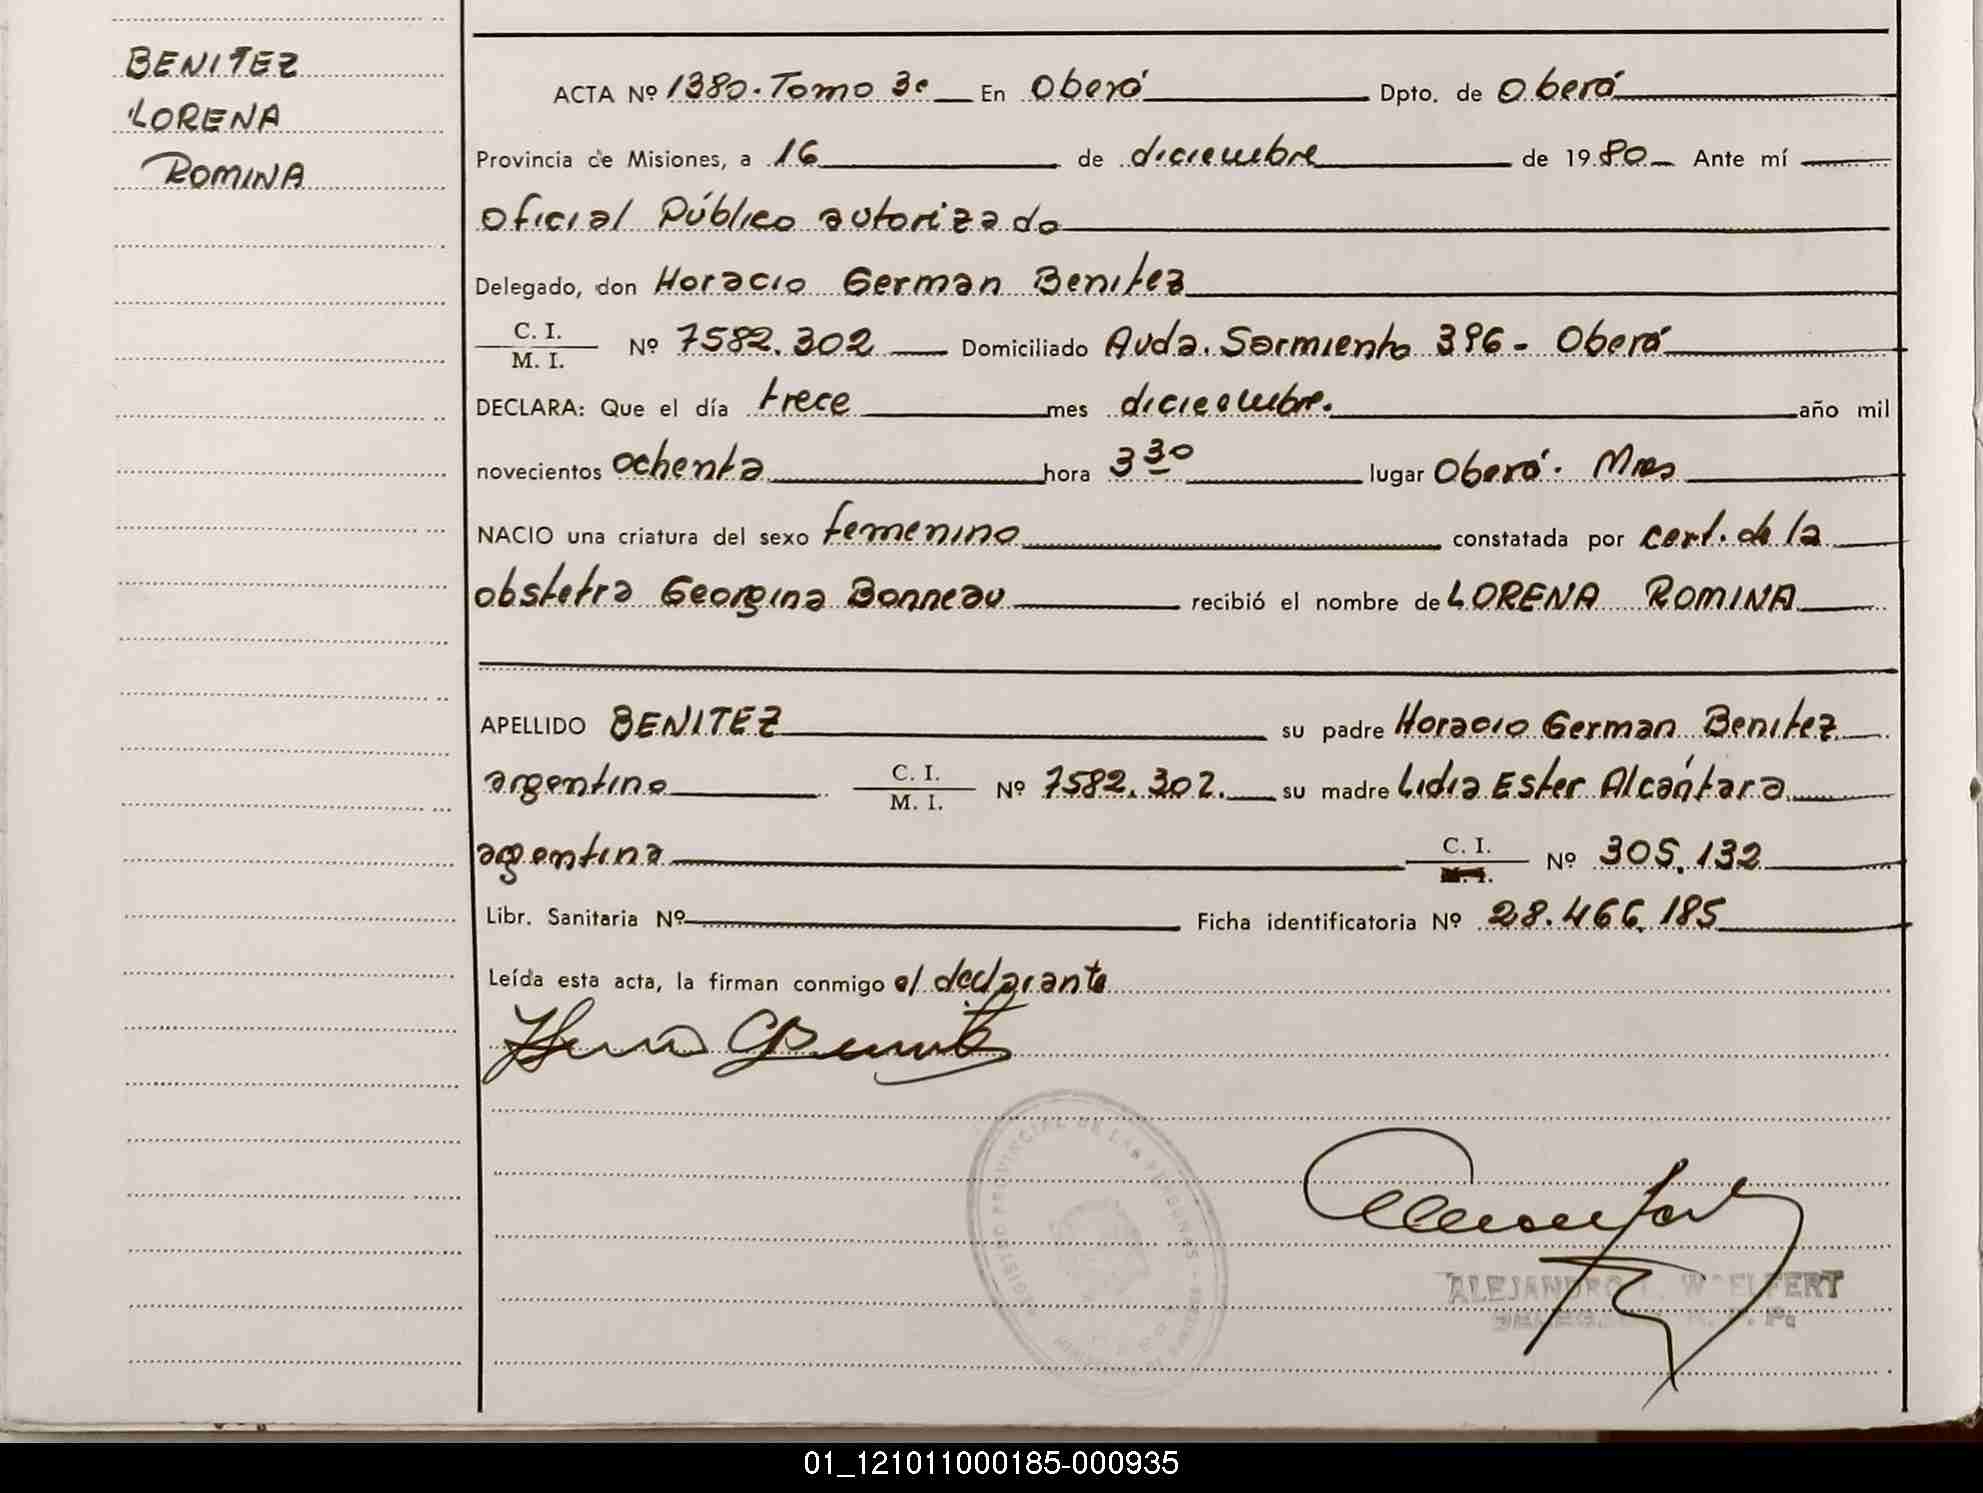 BENITEZ
LORENA
ROMINA
ACTA Nº 1380. Tomo 3º En Oberá Dpto. de Oberá
Provincia de Misiones, a 16 de diciembre de 1980 Ante mí
Oficial Público autorizado
Delegado, don Horacio German Benitez
C. I.
M. I. Nº 7582.302 Domiciliado Avda. Sarmiento 396 - Oberá
DECLARA: Que el día trece mes diciembre. año mil
novecientos ochenta hora 3 30 lugar Oberá. Mnes
NACIO una criatura del sexo femenino constatada por cert. de la
obstetra Georgina Bonneau recibió el nombre de LORENA ROMINA
APELLIDO BENITEZ su padre Horacio German Benitez
argentino C. I. M. I. Nº 7582.302. su madre Lidia Ester Alcántara
argentina C. I. M. I. Nº 305.132
Libr. Sanitaria Nº Ficha identificatoria Nº 28.466.185
Leída esta acta, la firman conmigo el declarante
REGISTRO PROVINCIAL DE LAS PERSONAS
ALEJANDRO
01_121011000185-000935